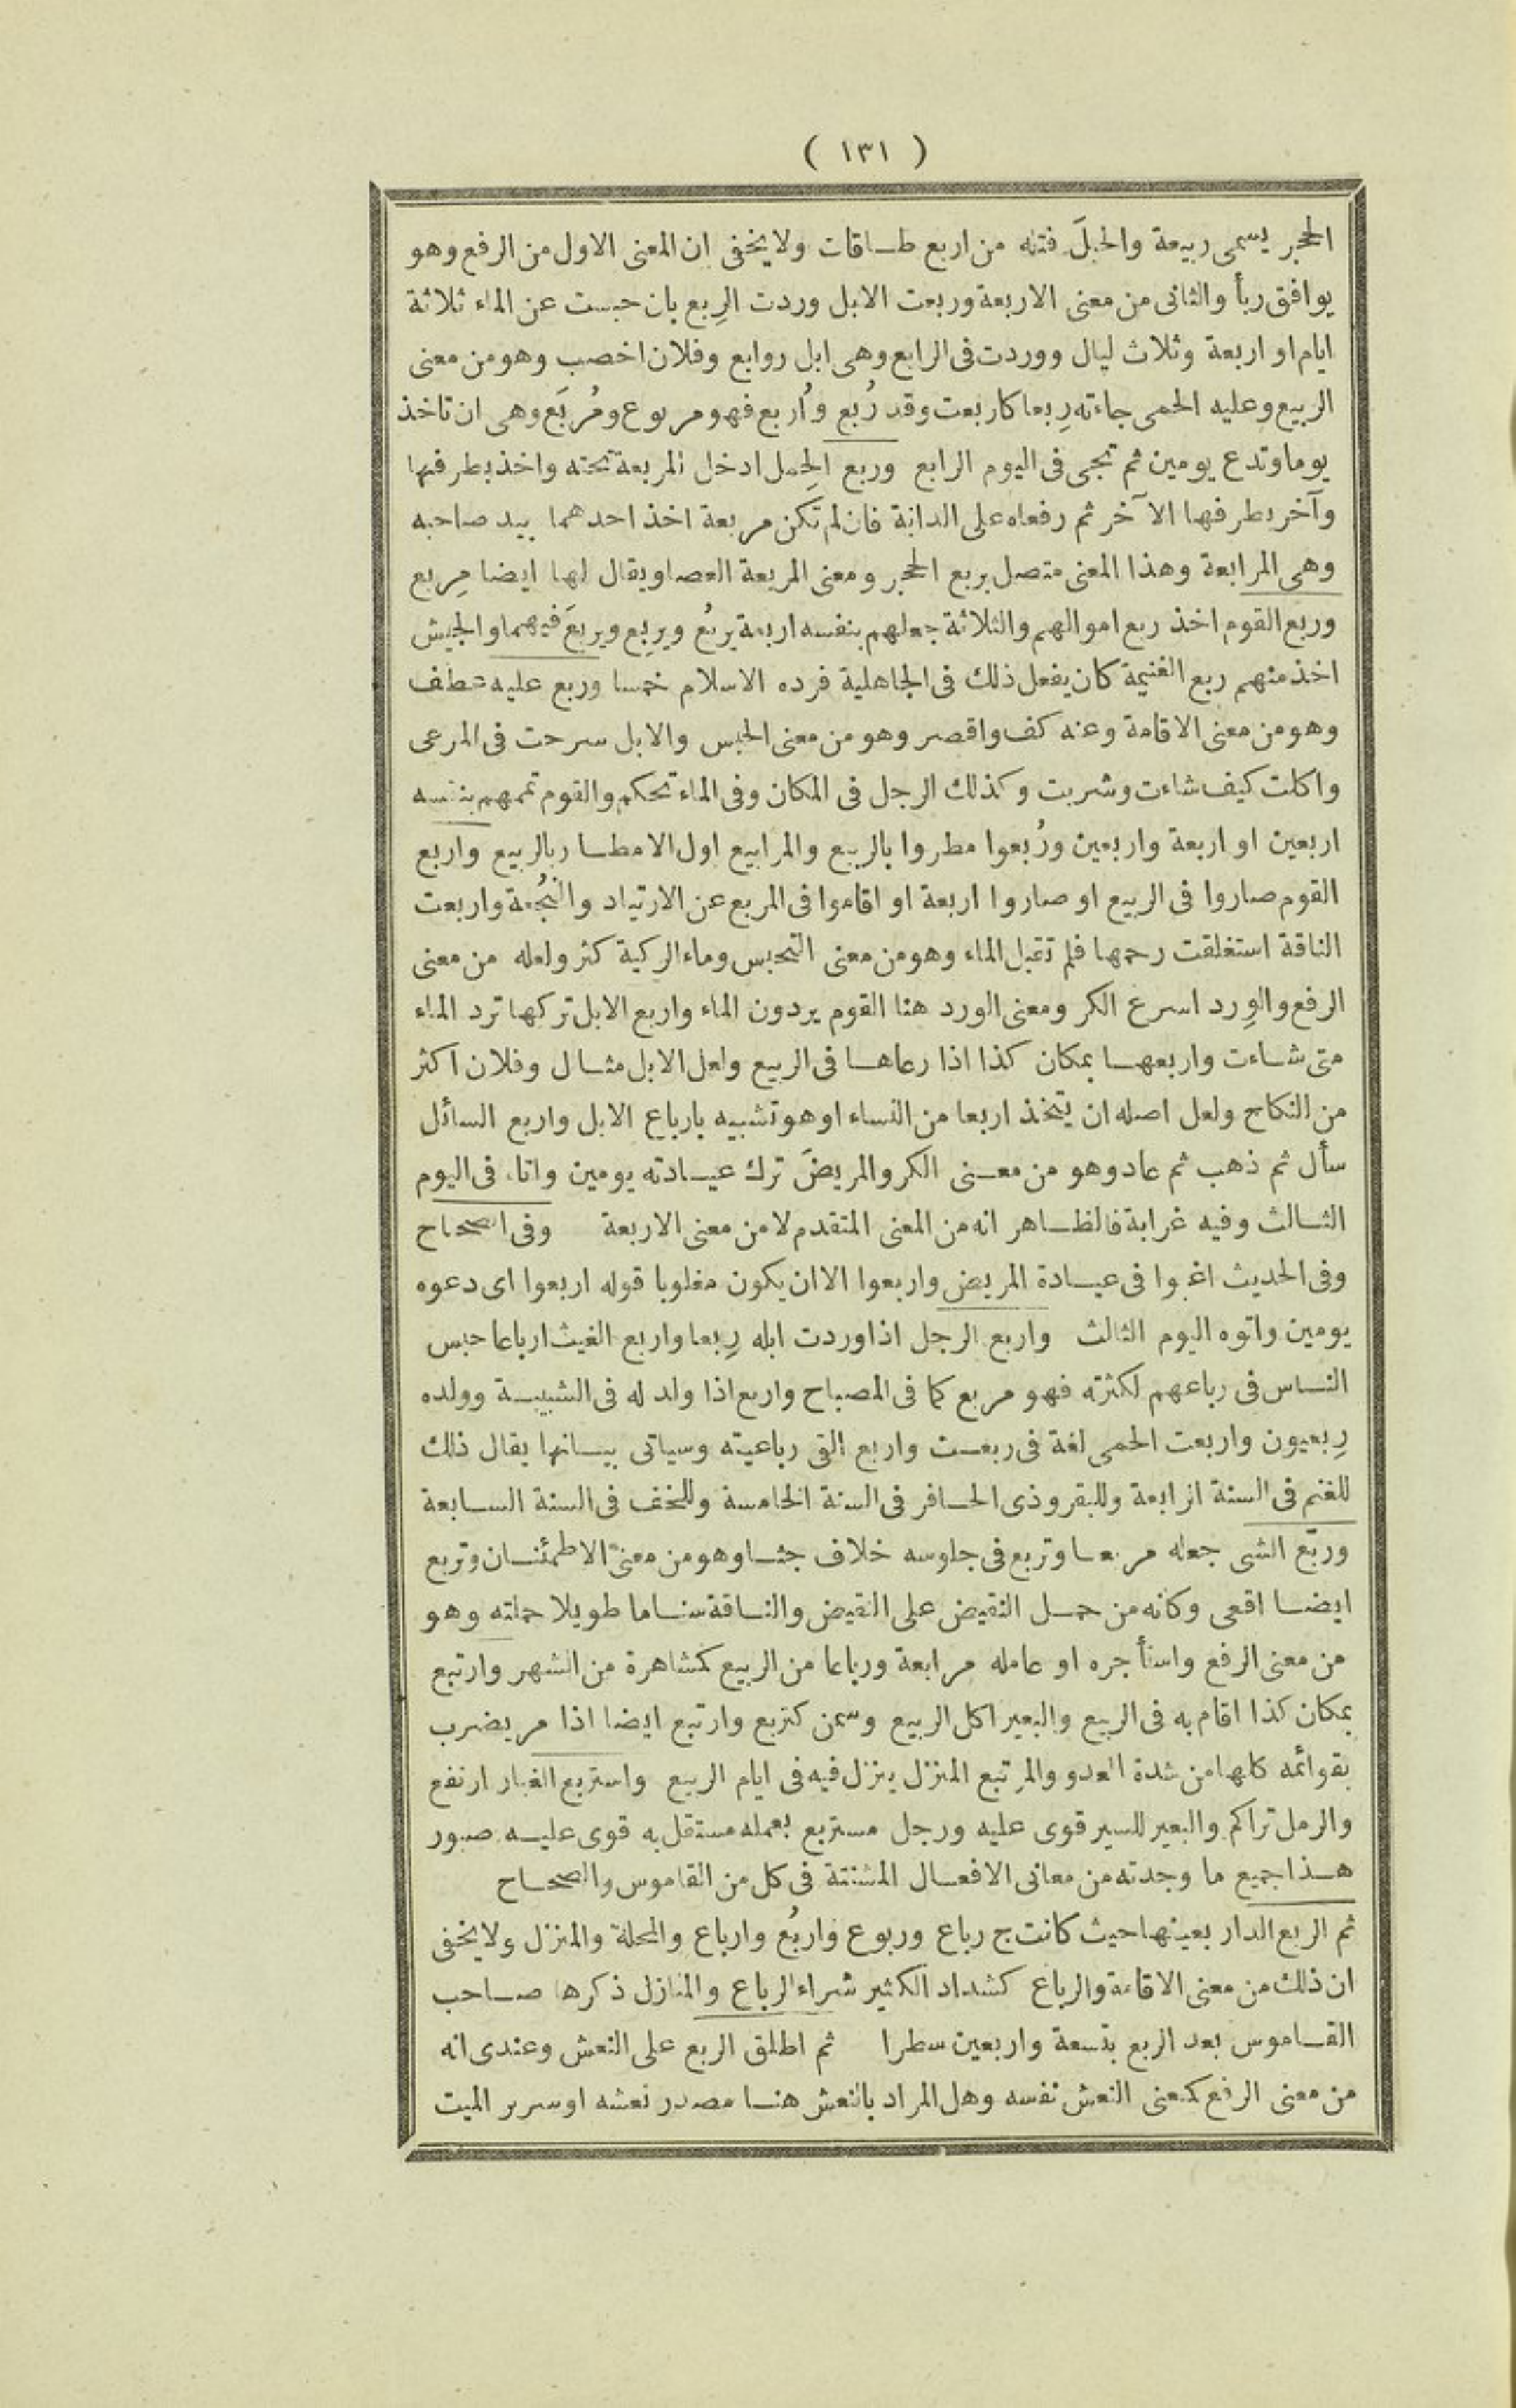 ( ١٣١ )
الحجر يسمى ربيعة والحبلَ فتله من اربع طاقات ولا يخفى ان المعنى الاول من الرفع وهو
يوافق ربأ والثانى من معنى الاربعة وربعت الابل وردت الرِبع بان حبست عن الماء ثلاثة
ايام او اربعة وثلاث ليال ووردت فى الرابع وهى ابل روابع وفلان اخصب وهو من معنى
الربيع وعليه الحمى جاءته رِبعا كاربعت وقد رُبع واُربع فهو مربوع ومُربَع وهى ان تاخذ
يوما وتدع يومين ثم تجى فى اليوم الرابع وربع الحِمل ادخل المربعة تحته واخذ بطرفها
وآخر بطرفها الآخر ثم رفعاه على الدابة فان لم تكن مربعة اخذ احدهما بيد صاحبه
وهى المرابعة وهذا المعنى متصل بربع الحجر ومعنى المربعة العصا ويقال لها ايضا مِربع
وربع القوم اخذ ربع اموالهم والثلاثة جعلهم بنفسه اربعة يربُع ويربِع ويربَع فيهما والجيش
اخذ منهم ربع الغنيمة كان يفعل ذلك فى الجاهلية فرده الاسلام خمسا وربع عليه عطف
وهو من معنى الاقامة وعنه كف واقصر وهو من معنى الحبس والابل سرحت فى المرعى
واكلت كيف شاءت وشربت وكذلك الرجل فى المكان وفى الماء تحكم والقوم تممهم بنفسه
اربعين او اربعة واربعين ورُبعوا مطروا بالربيع والمرابيع اول الامطار بالربيع واربع
القوم صاروا فى الربيع او صاروا اربعة او اقاموا فى المربع عن الارتياد والنُجعة واربعت
الناقة استغلقت رحمها فلم تقبل الماء وهو من معنى التحبس وماء الركية كثر ولعله من معنى
الرفع والوِرد اسرع الكر ومعنى الورد هنا القوم يردون الماء واربع الابل تركها ترد الماء
متى شاءت واربعها بمكان كذا اذا رعاها فى الربيع ولعل الابل مثال وفلان اكثر
من النكاح ولعل اصله ان يتخذ اربعا من النساء او هو تشبيه بارباع الابل واربع السائل
سأل ثم ذهب ثم عاد وهو من معنى الكر والمريضَ ترك عيادته يومين واتاه فى اليوم
الثالث وفيه غرابة فالظاهر انه من المعنى المتقدم لا من معنى الاربعة وفى الصحاح
وفى الحديث اغبوا فى عيادة المريض واربعوا الا ان يكون مغلوبا قوله اربعوا اى دعوه
يومين واتوه اليوم الثالث واربع الرجل اذا وردت ابله رِبعا واربع الغيث ارباعا حبس
الناس فى رباعهم لكثرته فهو مربع كما فى المصباح واربع اذا ولد له فى الشبيبة وولده
رِبعيون واربعت الحمى لغة فى ربعت واربع القى رباعيته وسياتى بيانها يقال ذلك
للغنم فى السنة الرابعة وللبقر وذى الحافر فى السنة الخامسة وللخف فى السنة السابعة
وربّع الشى جعله مربعا وتربع فى جلوسه خلاف جثا وهو من معنى الاطمئنان وتربع
ايضا اقعى وكأنه من حمل النقيض على النقيض والناقة سناما طويلا حملته وهو
من معنى الرفع واستأجره او عامله مرابعة ورباعا من الربيع كمشاهرة من الشهر وارتبع
بمكان كذا اقام به فى الربيع والبعير اكل الربيع وسمن كتربع وارتبع ايضا اذا مر يضرب
بقوائمه كلها من شدة العدو والمرتبع المنزل ينزل فيه فى ايام الربيع واستربع الغبار ارتفع
والرمل تراكم والبعير للسير قوى عليه ورجل مستربع بعمله مستقل به قوى عليه صبور
هذا جميع ما وجدته من معانى الافعال المشتتة فى كل من القاموس والصحاح
ثم الربع الدار بعينها حيث كانت ج رباع وربوع واربُع وارباع والمحلة والمنزل ولا يخفى
ان ذلك من معنى الاقامة والرباع كشداد الكثير شراء الرباع والمنازل ذكرها صاحب
القاموس بعد الربع بتسعة واربعين سطرا ثم اطلق الربع على النعش وعندى انه
من معنى الرفع كمعنى النعش نفسه وهل المراد بالنعش هنا مصدر نعشه او سرير الميت